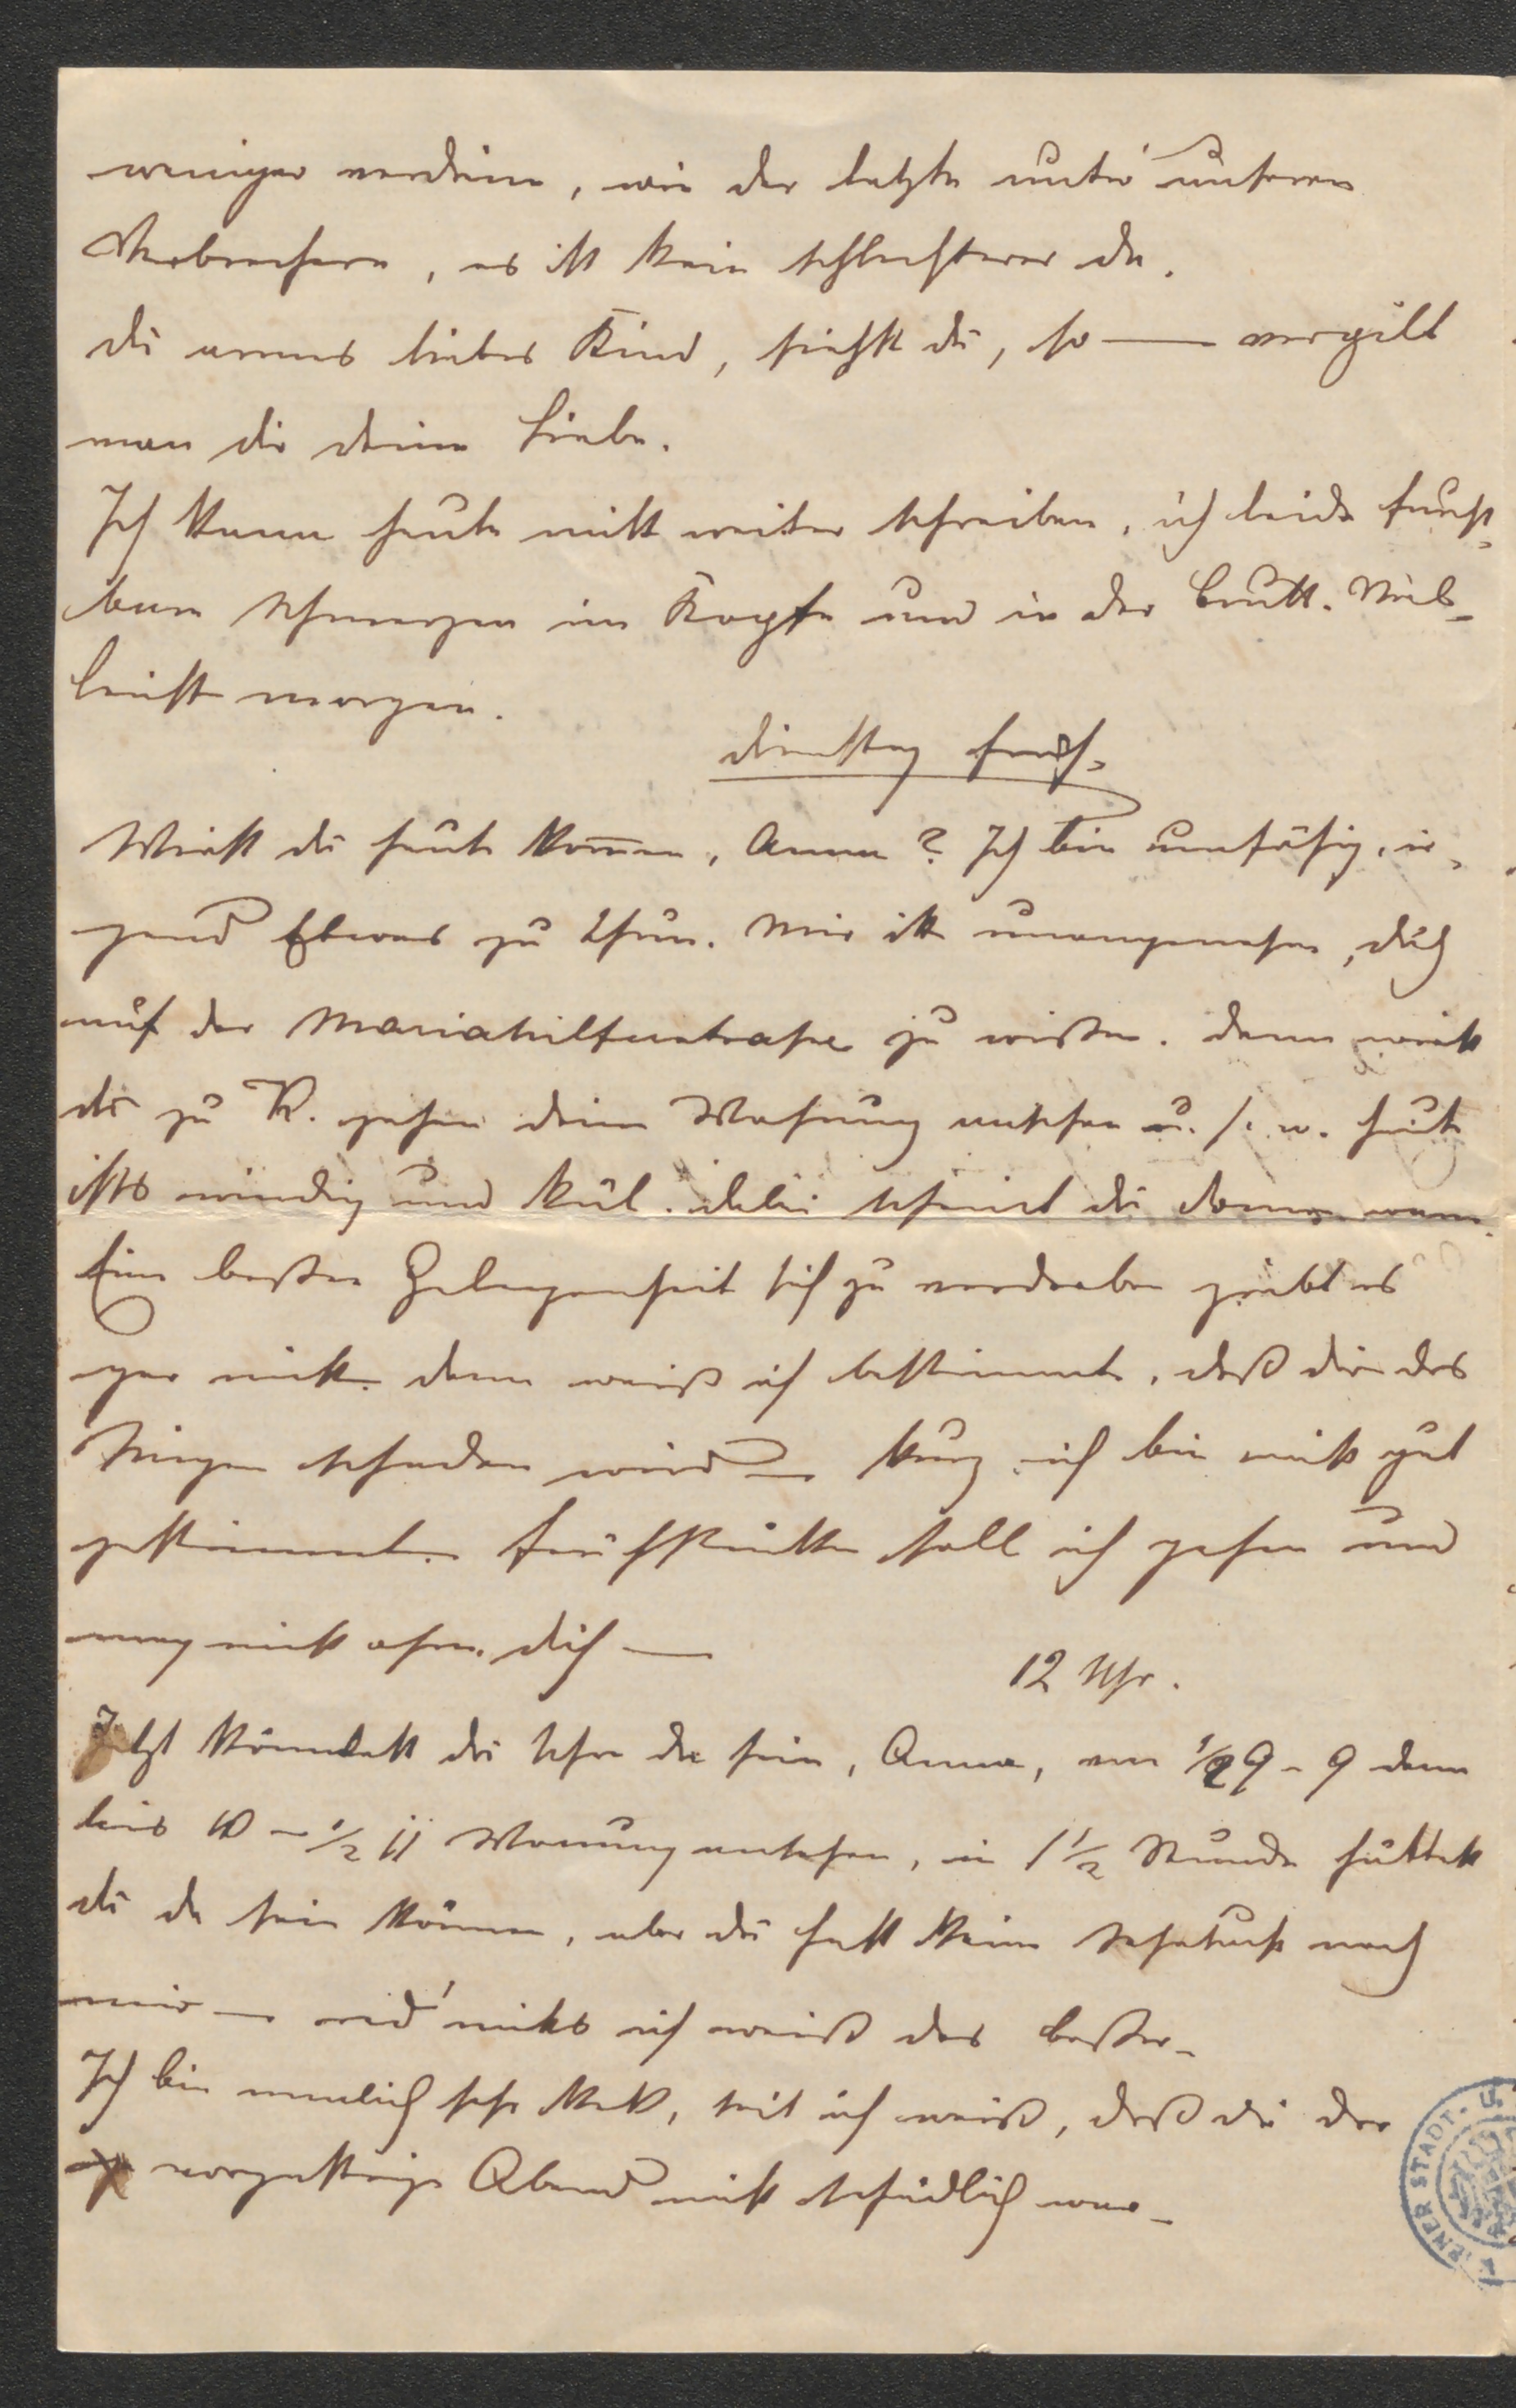 weniger verdiene, wie der letzte unter unseren
Verbrechern, es ist kein schlechterer da.
Du armes liebes Kind, siehst du, so — vergilt
man dir deine Liebe.
Ich kann heute nicht weiter schreiben, ich leide furcht-
bare Schmerzen im Kopfe und in der Brust. Viel-
leicht morgen.
Dienstag früh.
Wirst du heute kom̄en, Anna? Ich bin unfähig, ir-
gend Etwas zu thun. Mir ist unangenehm, dich
auf der Mariahilferstraße zu wißen. Dann wirst
du zu K. gehen deine Wohnung ansehen u. s. w. heute
ists windig und kül. dabei scheint die Sonne warm.
Eine beßere Gelegenheit sich zu verderben giebt es
gar nicht. Dann weiß ich bestimmt, daß dir das
Singen schaden wird — kurz ich bin nicht gut
gestimmt. Frühstücken soll ich gehen und
mag nicht ohne dich —
12 Uhr.
Jetzt könntest du schon da sein, Anna, um ½9 - 9 dann
bis 10 - ½ 11 Wonung ansehen, in 1½ Stunde hättest
du da sein können, aber du hast keine Sehnsucht nach
mir — red' nichts ich weiß das beßer -
Ich bin nemlich sehr keck, seit ich weiß, daß dir der
vorgestrige Abend nicht schädlich war -
WIENER STADT- U.